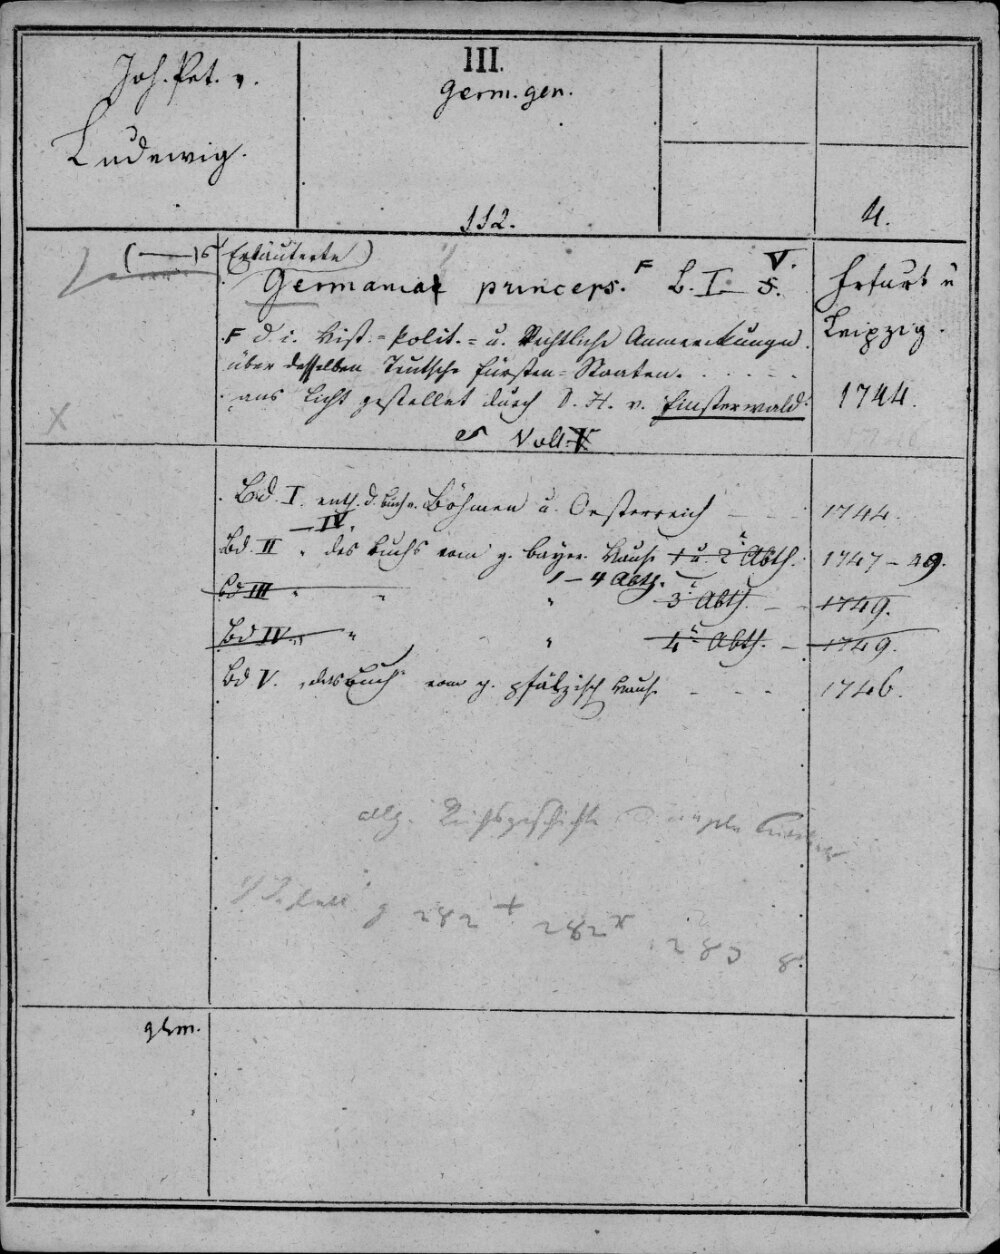 Joh. Pet. v.
Ludewig.
III.
Germ. gen.
112.
4.
(——)s Erläuterte)
Germaniae princeps. F B. I – 5. V.
Erfurt u
Leipzig.
1744.
F d. i. Hist.- Polit.- u. Rechtliche Anmerckungen
über desselben Teutsche Fürsten-Staaten.
ans Licht gestellet durch D. H. v. Finsterwald.
X
Voll. V
Bd. I. enth. d. Buch v. Böhmen u. Oesterreich – – 1744.
– IV.
Bd. II " des Buchs vom g. bayer. Hause 1 u. 2 Abth. 1747–49.
1–4 Abth.
Bd III " " " 3 Abth. – 1749.
Bd IV " " " 4 Abth. – 1749.
Bd V. "das Buch" vom g. pfälzisch Hause – – – 1746.
allg. Reichsgeschichte
282 + 282 x 283 8.
germ.